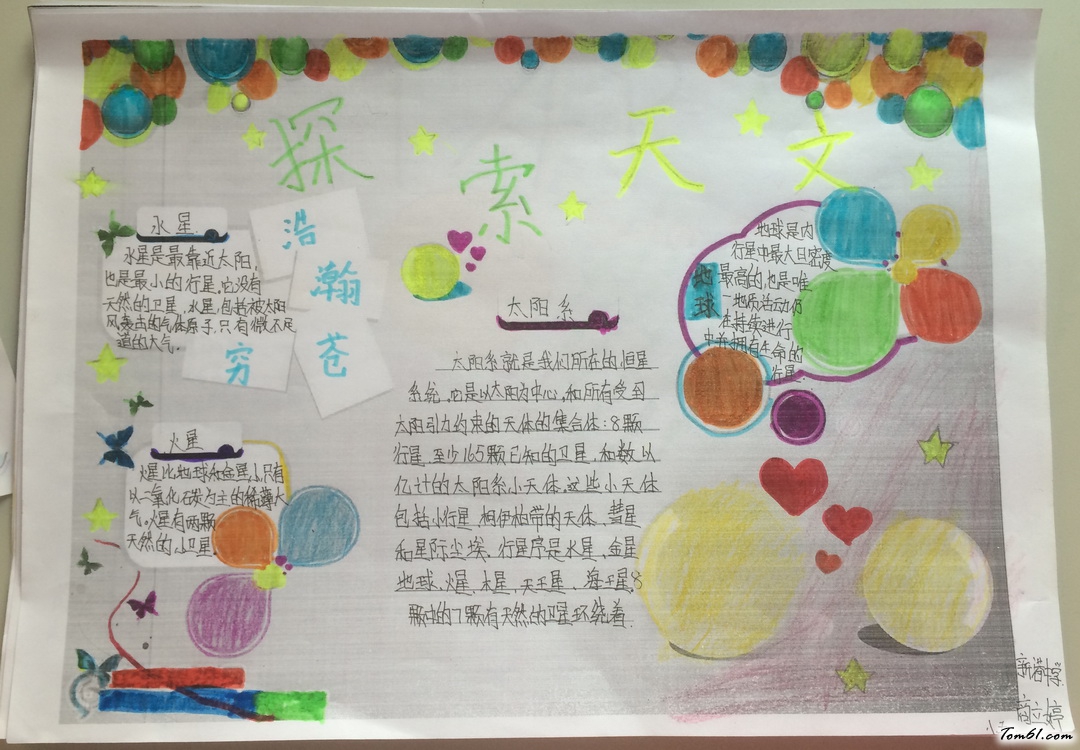 探索天文
浩
瀚
苍
穷
水星
水星是最靠近太阳,
也是最小的行星。它没有
天然的卫星。水星包括被太阳
风轰击的气体原子,只有微不足
道的大气。
火星
火星比地球和金星小,只有
以二氧化碳为主的稀薄大
气。火星有两颗
天然的小卫星。
太阳系
太阳系就是我们所在的恒星
系统。它是以太阳为中心,和所有受到
太阳引力约束的天体的集合体:8颗
行星、至少165颗已知的卫星,和数以
亿计的太阳系小天体。这些小天体
包括小行星、柯伊柏带的天体、彗星
和星际尘埃。行星序是水星、金星
地球、火星、木星、天王星、海王星8
颗中的7颗有天然的卫星环绕着
地球
地球是内
行星中最大且密度
最高的,也是唯
地质活动仍
在持续进行
中并拥有生命的
行星。
Tom61.com